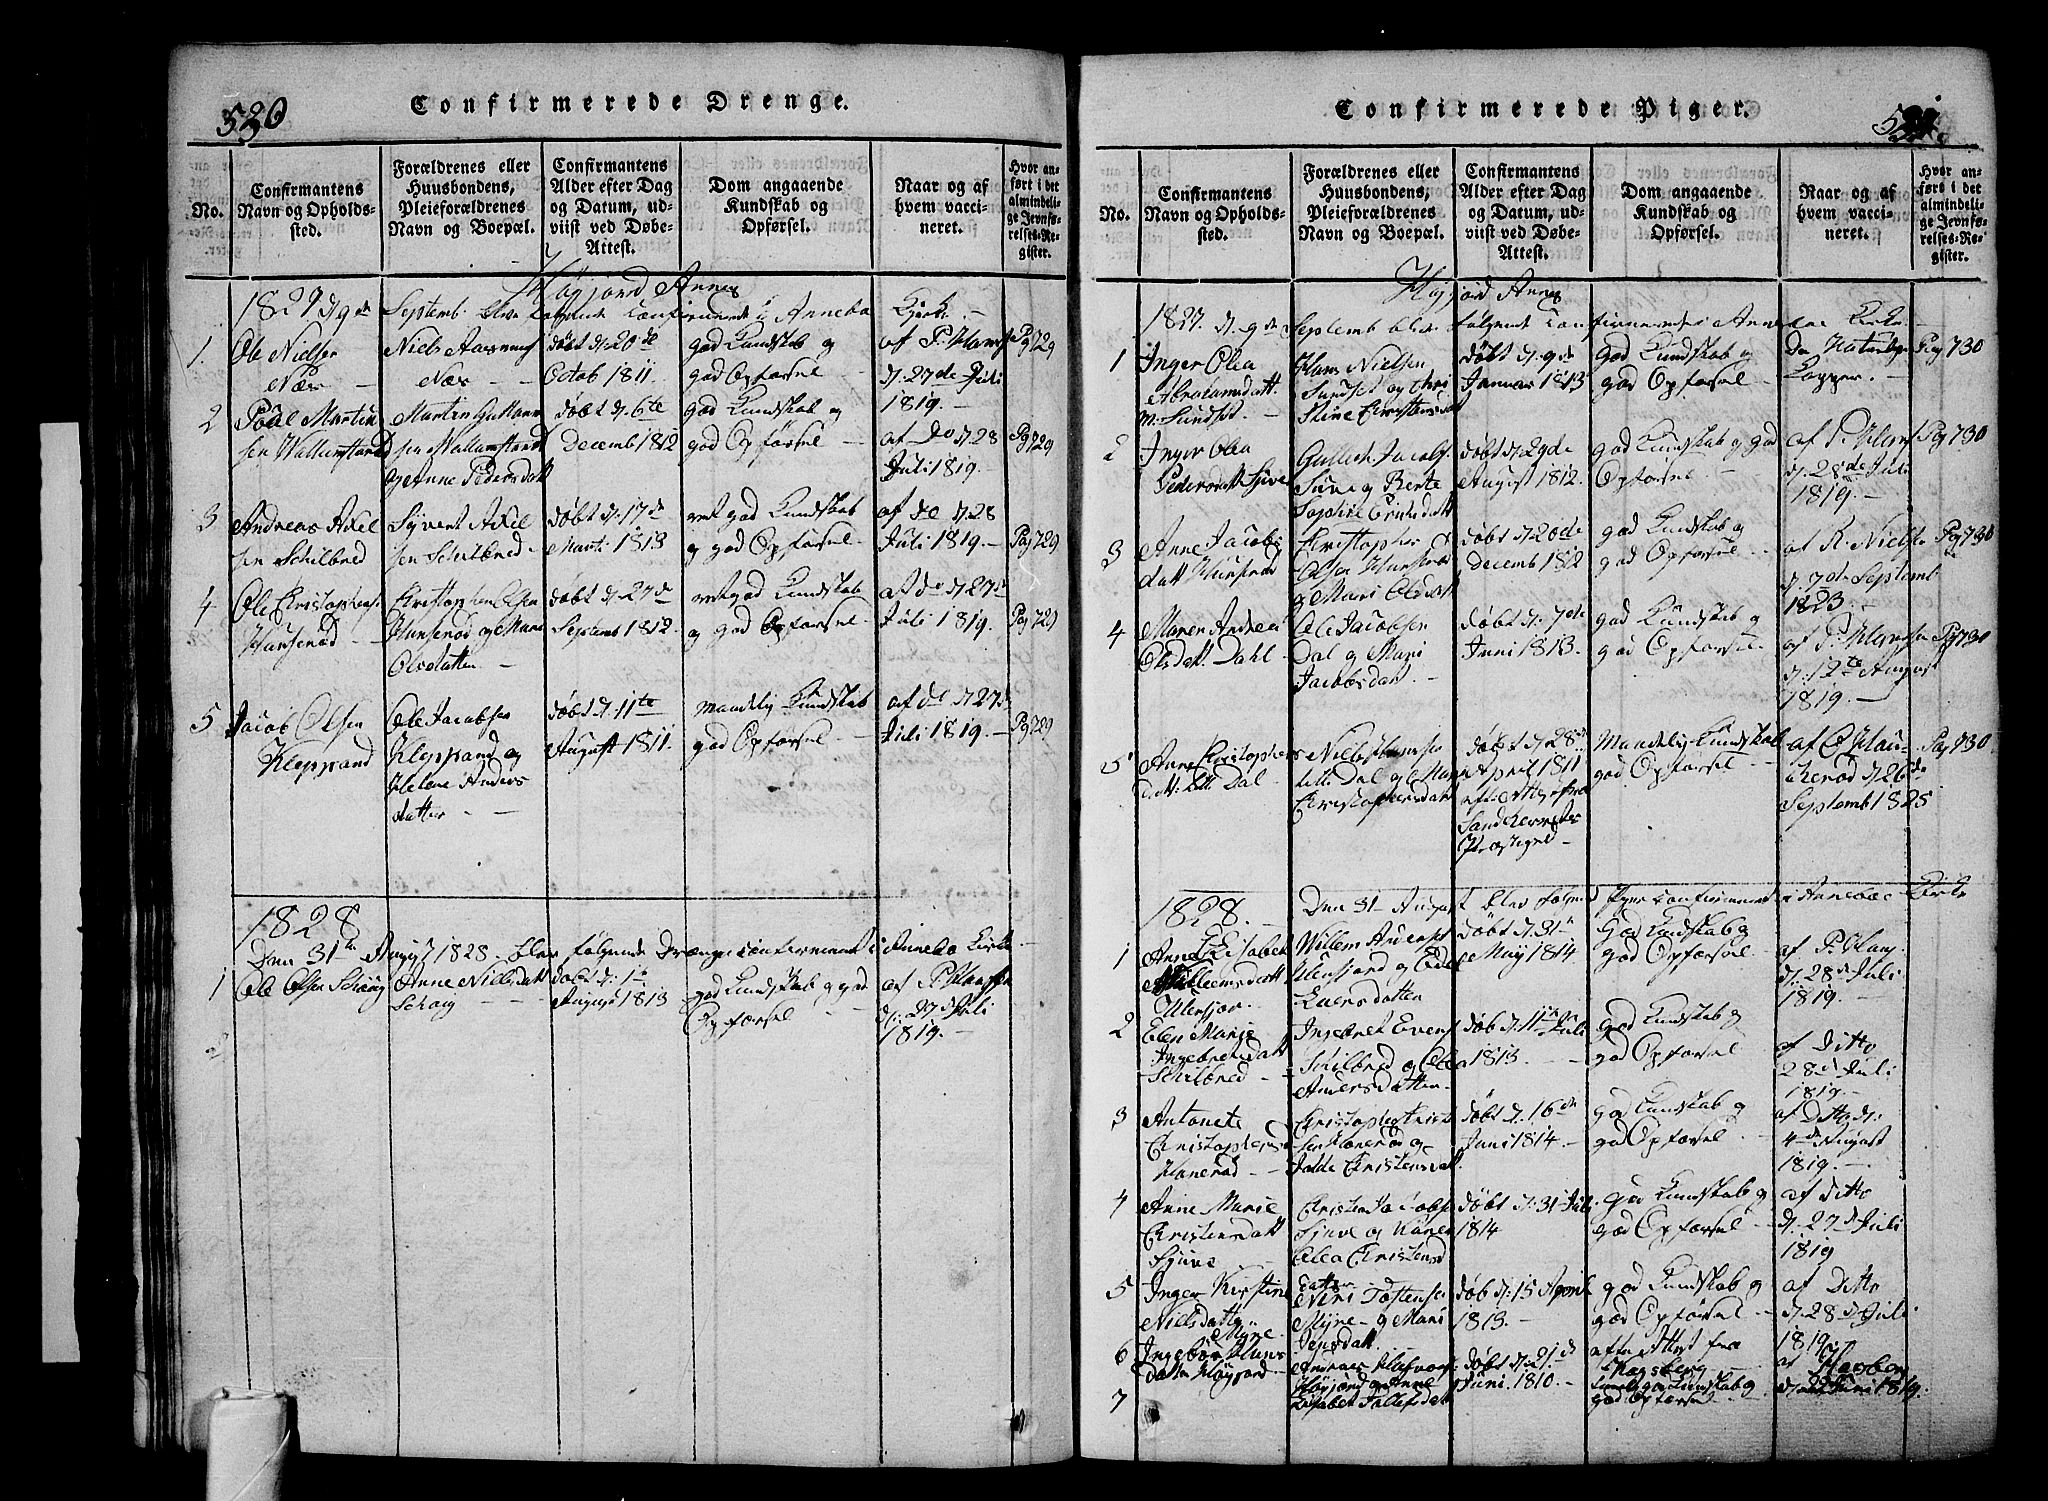 530
Confirmerede Drenge.
No.
Confirmantens
Navn og Opholds-
sted.
Forældrenes eller
Huusbondens,
Pleieforældrenes
Navn og Boepæl.
Confirmantens
Alder efter Dag
og Datum, ud-
viist ved Døbe-
Attest.
Dom angaaende
Kundskab og
Opførsel.
Naar og af
hvem vacci-
neret.
Hvor an-
ført i det
almindeli-
ge Jevnfø-
relses-Re-
gister.
Høyjord Annex
1827 d. 9de Septemb. blev følgende Confirmerede i Annebo Kirke
1.
Ole Nielsen
Næs
Niels
Næs
døbt d. 20de
Octob 1811.
god Kundskab og
god Opførsel
af P. Hansen
d. 27de Juli
1819.
Pg 729
2
Poul Martin
sen Wallumstand
Martin
sen Wallumstand
og Anne Pedersdatt
døbt d. 6te
Decemb 1812
god Kundskab og
god Opførsel
af Do d. 28
Juli 1819.
Pg 729
3
Andreas Axel
sen Schilbred
Syvert Axel
sen Schilbred
døbt d. 17de
Marti 1813
ret god Kundskab
og god Opførsel
af do d. 28
Juli 1819.
Pag 729
4
Ole Christophers.
Hansenød
Christopher Olsen
Hansenød og Mari
Olsdatter
døbt d. 27de
Septemb 1812.
ret god Kundskab
og god Opførsel
af do d. 27de
Juli 1819.
Pag 729
5
Jacob Olsen
Kleppand
Ole Jacobsen
Kleppand og
Helene Anders
datter
døbt d. 11te
August 1811.
maadelig Kundskab
god Opførsel
af do d. 27de
Juli 1819.
Pg 729
1828
Den 31te August 1828. blev følgende Drenge confirmeret i Annebo Kirke
1
Ole Olsen Schoug
Anne Nielsdatt
Schoug
døbt d. 1te
August 1813
god Kundskab og god
Opførsel
af P. Hansen
d. 27de Juli
1819.
2
Confirmerede Piger.
No.
Confirmantens
Navn og Opholds-
sted.
Forældrenes eller
Huusbondens,
Pleieforældrenes
Navn og Boepæl.
Confirmantens
Alder efter Dag
og Datum, ud-
viist ved Døbe-
Attest.
Dom angaaende
Kundskab og
Opførsel.
Naar og af
hvem vacci-
neret.
Hvor an-
ført i det
almindeli-
ge Jevnfø-
relses-Re-
gister.
Høyjord Annex
1827. d. 9de Septemb blev følgende Confirmerede i Annebo Kirke
1
Inger Olea
Abrahamsdatt.
Hans Nielsen
Sundset og Chri
stine Christensdatt
døbt d. 9de
Januar 1813
God Kundskab og
god Opførsel
Kopper.
Pag 730
2
Inger Olea
Gullich Jacobs.
og Berte
Sophie
døbt d. 29de
August 1812.
god Kundskab og god
Opførsel
af P. Hans.
d. 28de Juli
1819.
Pag 730
3
Anne Jacobe
datt Hansenød
Christopher
Olsen Hansenød
og Mari Olsdatt
døbt d. 20de
Decemb 1812
god Kundskab og
god Opførsel
af R. Nielse
d. 7de Septemb
1823.
Pag 730
4
Maren Andrea
Olsdatt Dahl
Ole Jacobsen
Dal og Mari
Jacobsdatt.
døbt d. 7de
Juni 1813.
god Kundskab og
god Opførsel.
af P. Hansen
d. 12te August
1819.
Pag 730
5
Anne Christophers
datt. litle Dal
Niels Hansen
litle Dal og Mari
Christophersdatt
døbt d. 28de
April 1811
efter Attest fra
Sandeherreds
Præstegield
Maadelig Kundskab
god Opførsel
af O. Hau-
kerød d. 26de
Septemb 1825
Pag 730
1828.
Den 31 August blev følgende Piger confirmeret i Annebo Kirke
1
Anne Elisabet
Willemsdatt
Ulensjor.
Willem Anders.
Ulensjord og Edel
Evensdatter
døbt d. 31te
May 1814
God Kundskab og
god Opførsel
af P. Hans.
d. 28de Juli
1819.
2
Elen Marie
Ingebretsdatt
Schilbred
Ingebret Evens.
Schilbred og Olea
Andersdatter
døb d. 11te Juli
1813.
god Kundskab og
god Opførsel
af Ditto
28de Juli
1819.
3
Antonete
Christophersd
Hanerød
Christopher Christ
sen Hanerød og
Christensdatt.
døbt d. 16de
Juni 1814.
god Kundskab og
god Opførsel.
af Ditto d.
4de August
1819.
4
Anne Marie
Christensdatt
Sjuve
Christen Jacobs.
Sjuve og Karen
Olea Christensd
datter
døbt d. 31 Juli
1814
god Kundskab og
god Opførsel
af Ditto
d. 27de Juli
1819
5
Inger Kirstine
Nielsdatt
Myre
Tostensen
Myre og Mari
Jensdatt.
døb d. 15 April
1813.
god Kundskab og
god Opførsel
af Ditto
d. 28de Juli
1819.
6
Ingebor Hans
datter Høyjord
Høyjord og Anne
Lisabet
døbt d. 21de
Juni 1810.
efter Attest fra
god Kundskab og
god Opførsel
Juni 1819.
7